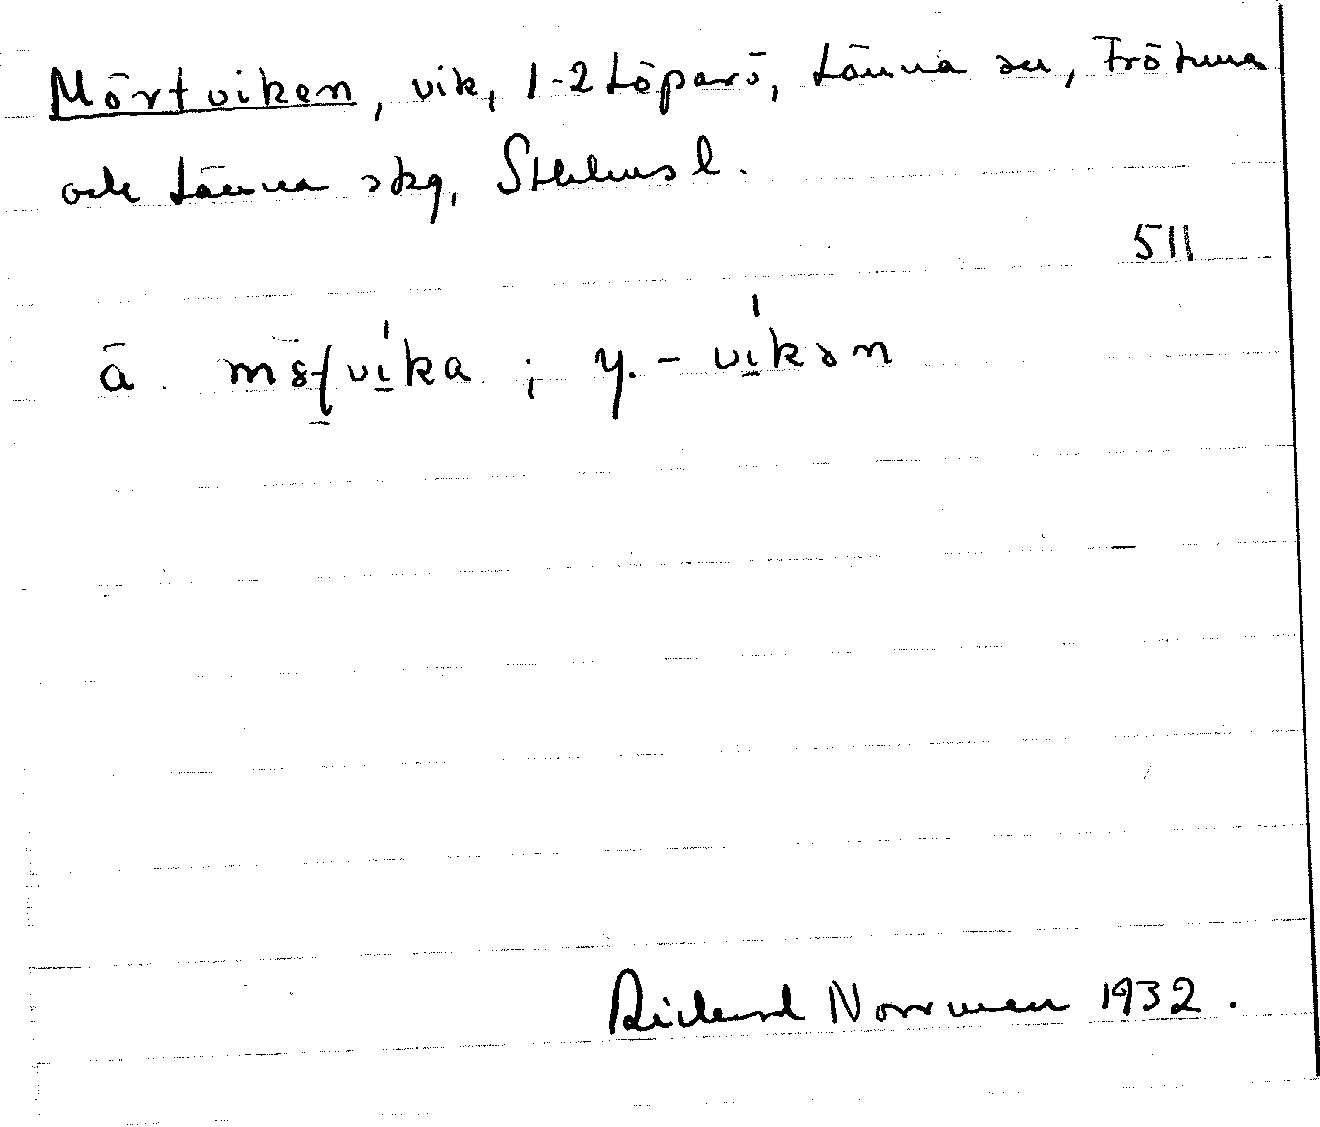 Mörtviken, vik, 1-2 Löparö, Länna sn, Frötuna
och Länna skg, Sthlms l.
511
ä. ; y. - vi̲kən
Rickard Norrman 1932.